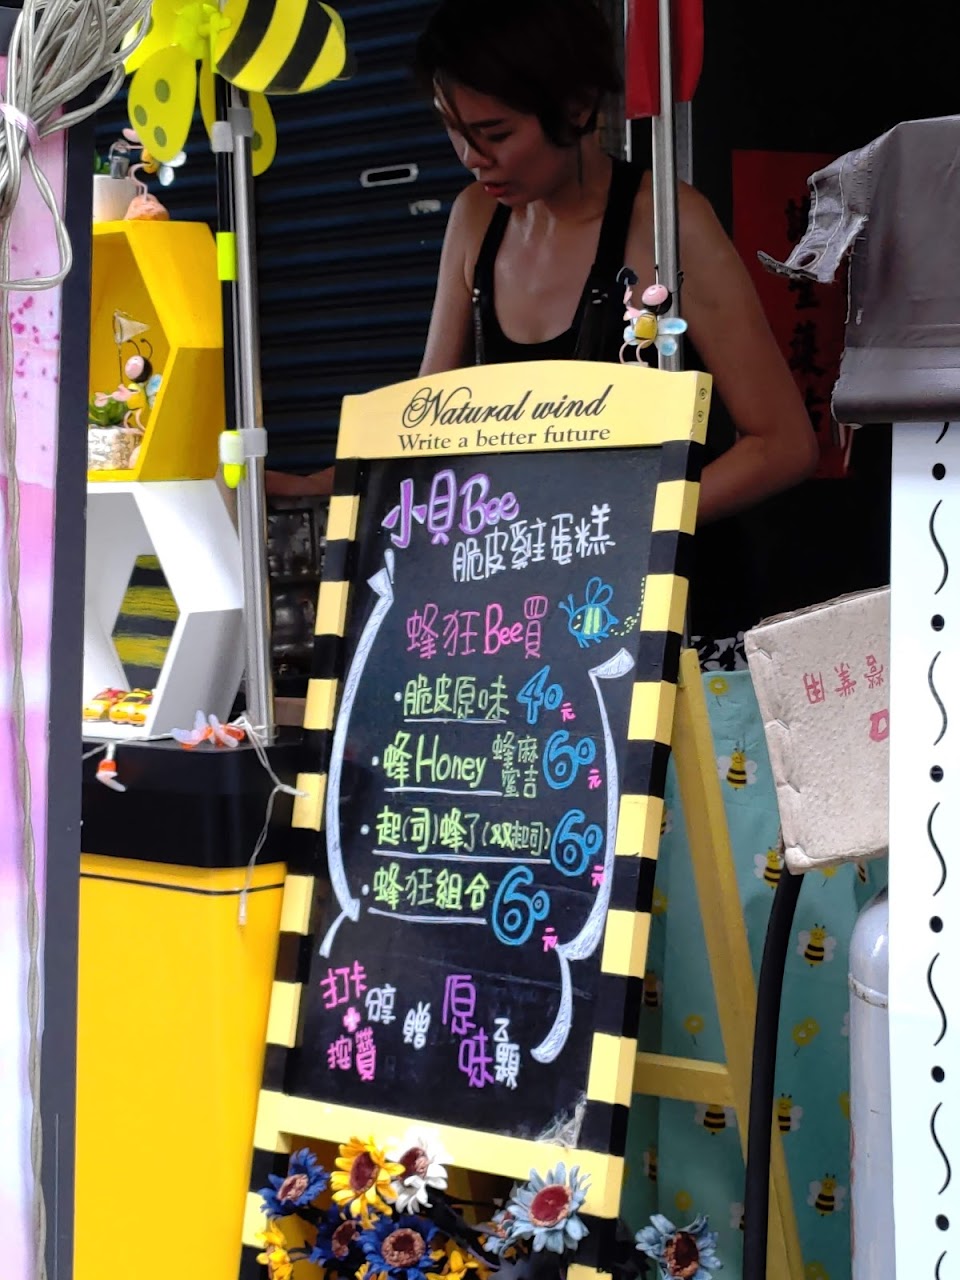 Natural wind
Write a better future
小貝Bee
脆皮雞蛋糕
蜂狂Bee買
·脆皮原味 40元
·蜂Honey 蜂蜜麻吉 60元
·起(司)蜂了(双起司) 60元
·蜂狂組合 60元
打卡+按讚 分享 贈 原味2顆
營業用